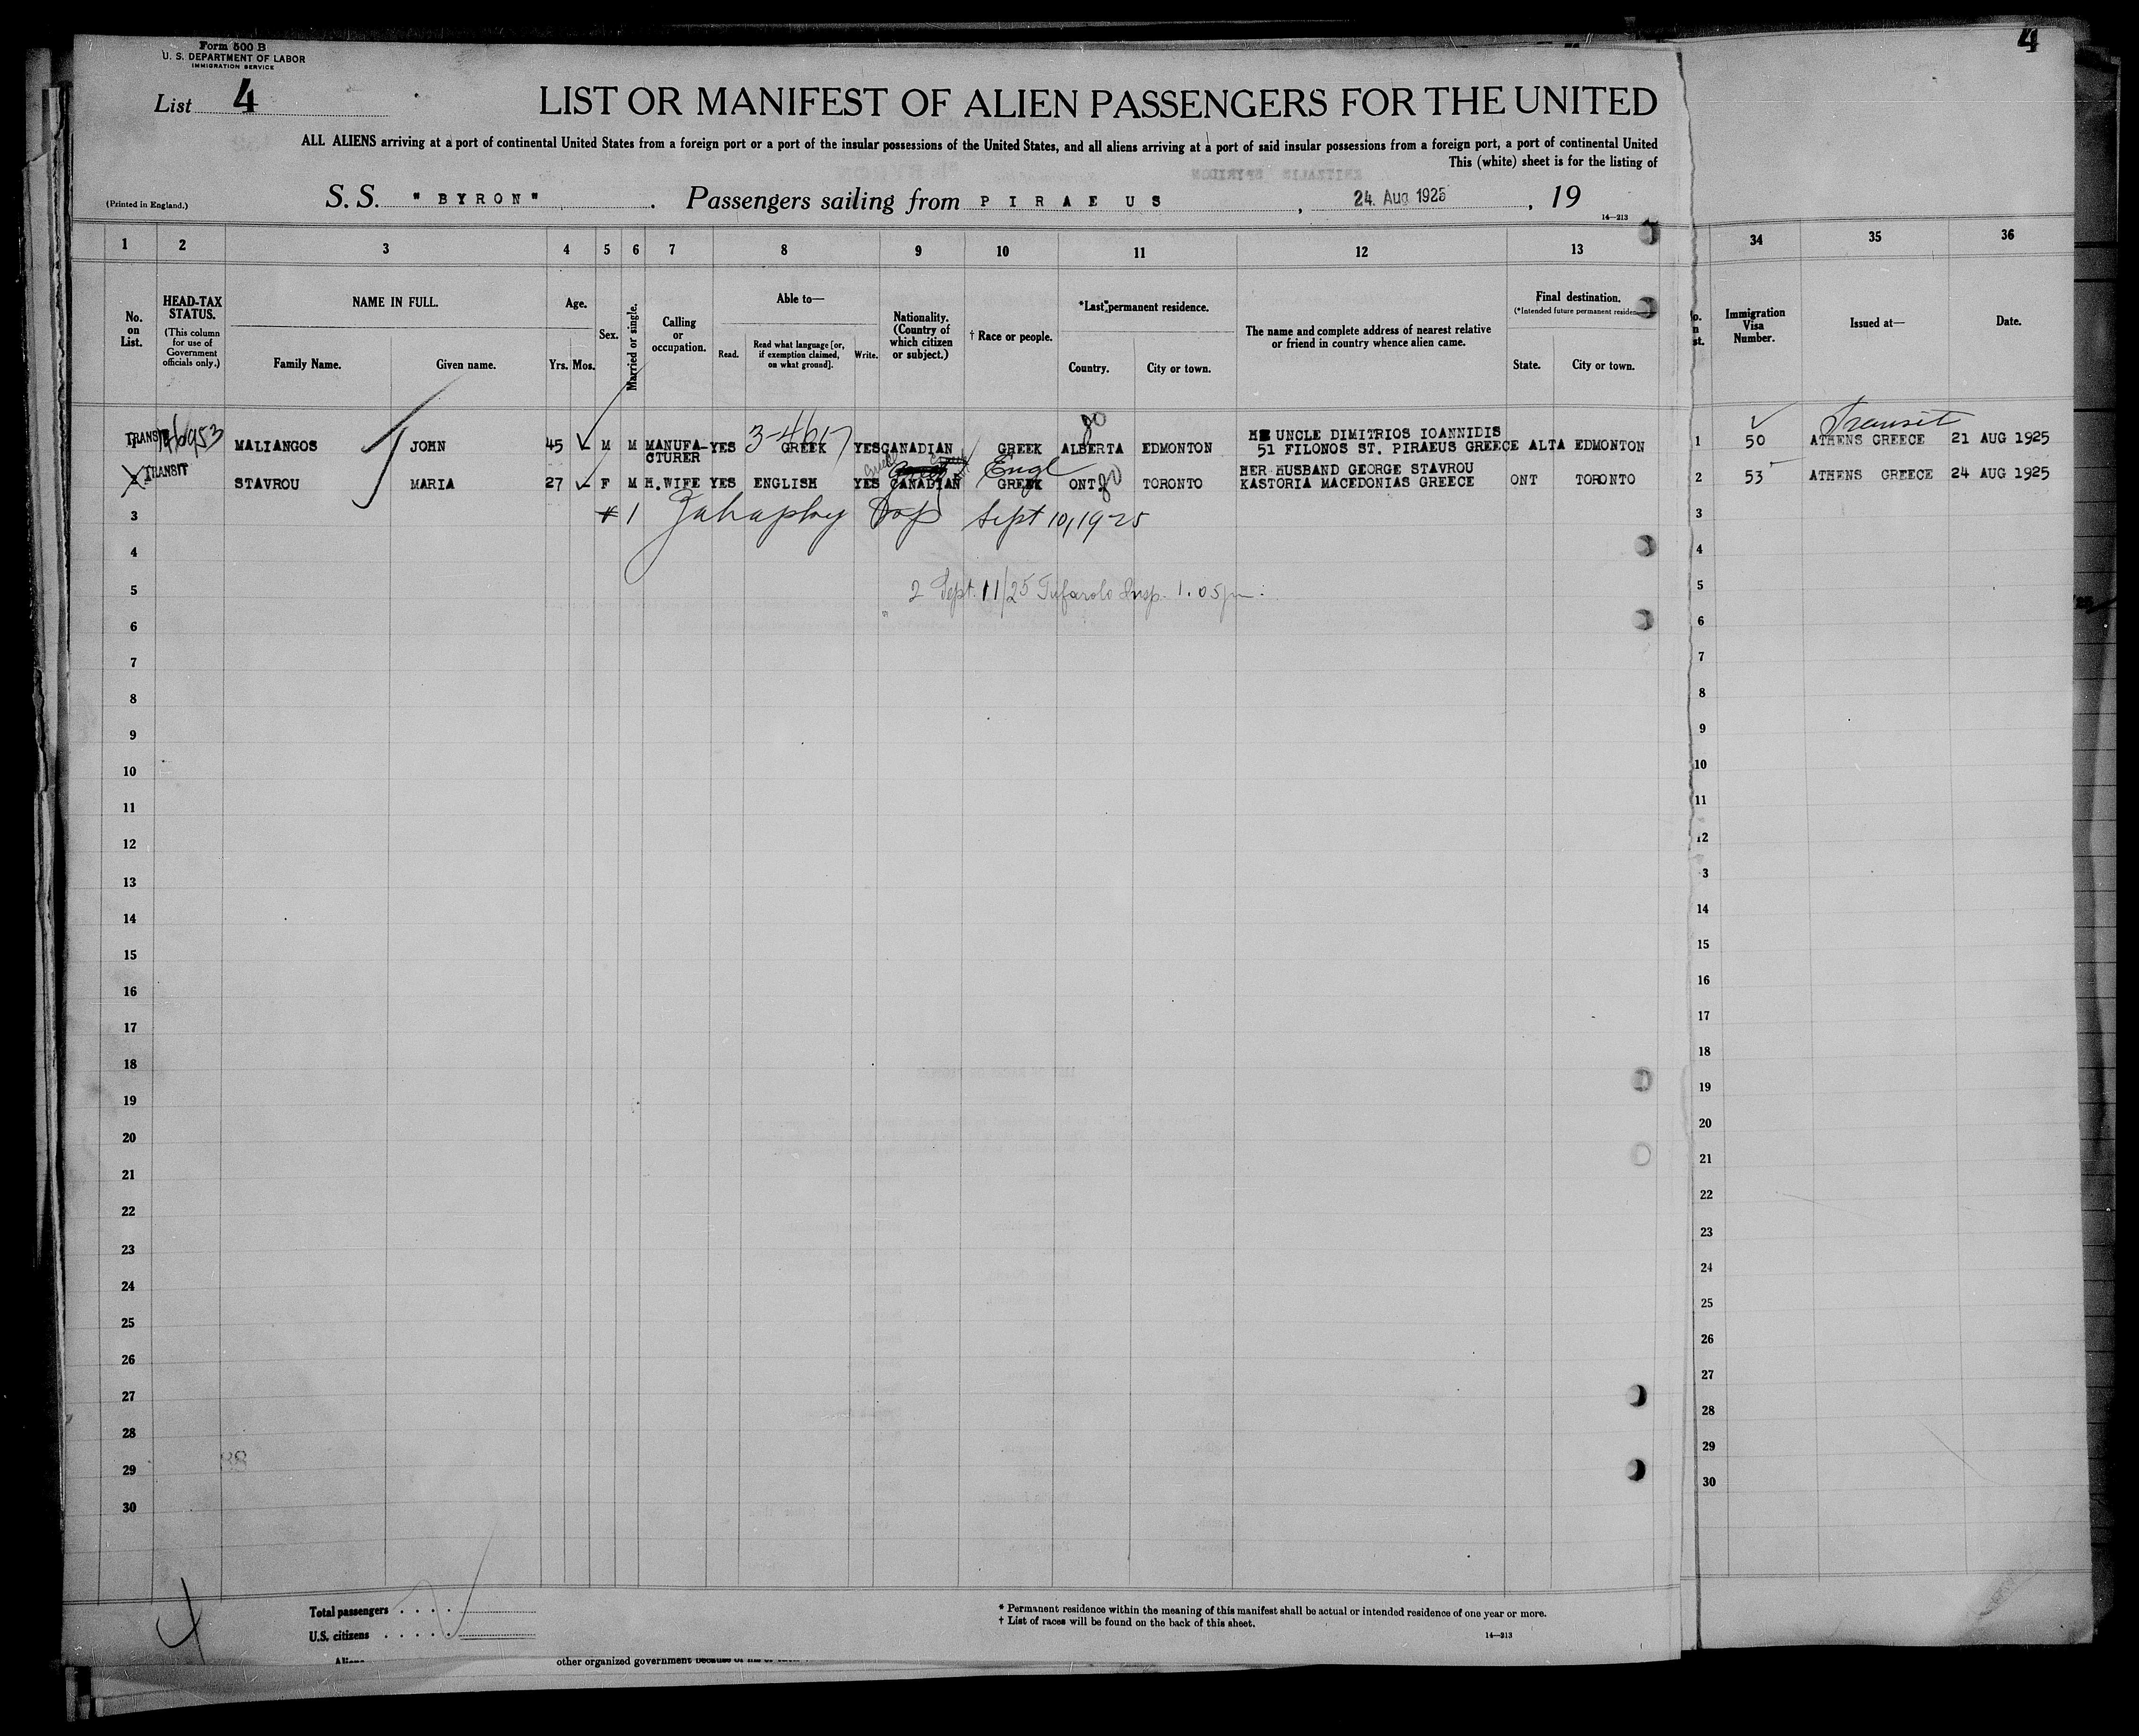 Form 500 B
U. S. DEPARTMENT OF LABOR
IMMIGRATION SERVICE
4
List 4
LIST OR MANIFEST OF ALIEN PASSENGERS FOR THE UNITED
ALL ALIENS arriving at a port of continental United States from a foreign port or a port of the insular possessions of the United States, and all aliens arriving at a port of said insular possessions from a foreign port, a port of continental United
This (white) sheet is for the listing of
(Printed in England.)
S. S. "BYRON" . Passengers sailing from PIRAEUS , 24. Aug 1925 , 19
14—213
1 2 3 4 5 6 7 8 9 10 11 12 13 34 35 36
No. on List.
HEAD-TAX STATUS.
(This column for use of Government officials only.)
NAME IN FULL.
Family Name. Given name.
Age.
Yrs. Mos.
Sex.
Married or single.
Calling or occupation.
Able to—
Read. Read what language [or, if exemption claimed, on what ground]. Write.
Nationality. (Country of which citizen or subject.)
† Race or people.
*Last permanent residence.
Country. City or town.
The name and complete address of nearest relative or friend in country whence alien came.
Final destination.
(*Intended future permanent residen
State. City or town.
Immigration Visa Number.
Issued at—
Date.
TRANSIT MALIANGOS JOHN 45 M M MANUFACTURER YES 3-4617 GREEK YES CANADIAN GREEK ALBERTA EDMONTON UNCLE DIMITRIOS IOANNIDIS
51 FILONOS ST. PIRAEUS GREECE ALTA EDMONTON 1 50 Transit ATHENS GREECE 21 AUG 1925
TRANSIT STAVROU MARIA 27 F M H.WIFE YES ENGLISH YES CANADIAN Engl GREEK ONT. 80 TORONTO HER HUSBAND GEORGE STAVROU
KASTORIA MACEDONIAS GREECE ONT TORONTO 2 53 ATHENS GREECE 24 AUG 1925
3 #1 Sept 10, 1925 3
4 4
5 2 Sept. 11/25 Insp. 1.05pm. 5
6 6
7 7
8 8
9 9
10 10
11 11
12 12
13 3
14 14
15 15
16 16
17 17
18 18
19 19
20 20
21 21
22 22
23 23
24 24
25 25
26 26
27 27
28 28
29 29
30 30
88
4
Total passengers . . . .
U.S. citizens . . . . .
* Permanent residence within the meaning of this manifest shall be actual or intended residence of one year or more.
† List of races will be found on the back of this sheet.
14—213
other organized government because of